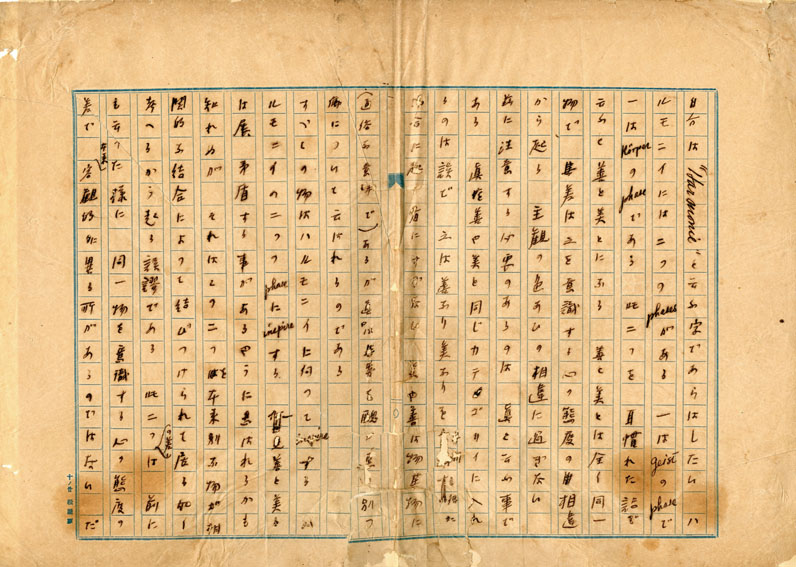 自分は "Harmonie" と云ふ字であらはしたい ハ
ルモニイには二つの phases がある 一は geist の phase で
一は Körper の phase である 此二つを 耳慣れた 語で
云ふと 善と美とになる 善と美とは全く同一
物で 其差は之を意識する心の態度の相違
から起る 主観の色あひの相違に過ぎない
茲に注意する必要のあるのは 真と云ふ事で
ある 真を善や美と同じカテゴリイに入れ
るのは誤で 之は善あり美あり
に起る 真や善は物其物に
(通俗な意味で)あるが真は
係について云はれるのである
すべての物はハルモニイに向つて inspire する ハ
ルモニイの二つの phase に inspire する 善と美と
は屡矛盾する事があるやうに思はれるかも
知れぬが それはこの二つを本来別な物が相
関的な結合によつて結びつけられて居る如く
考へるから起る誤謬である 此二つの差は 前に
も云つた様に 同一物を意識する心の態度の
差で 本来客観的に異る所があるのではない だ